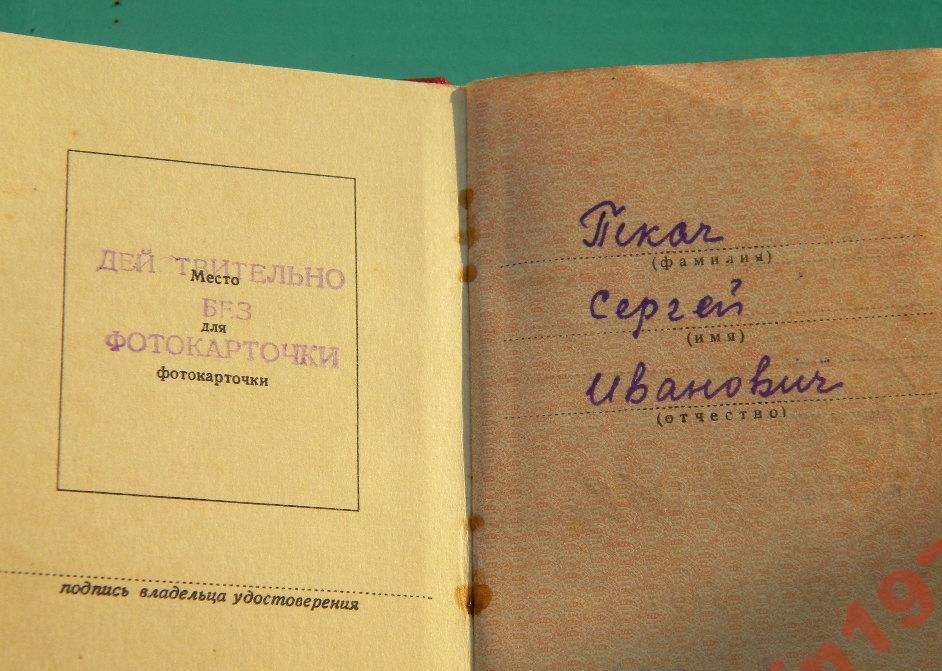 ДЕЙСТВИТЕЛЬНО
Место
БЕЗ
для
ФОТОКАРТОЧКИ
фотокарточки
подпись владельца удостоверения
Ткач
(фамилия)
Сергей
(имя)
Иванович
(отчество)
in197